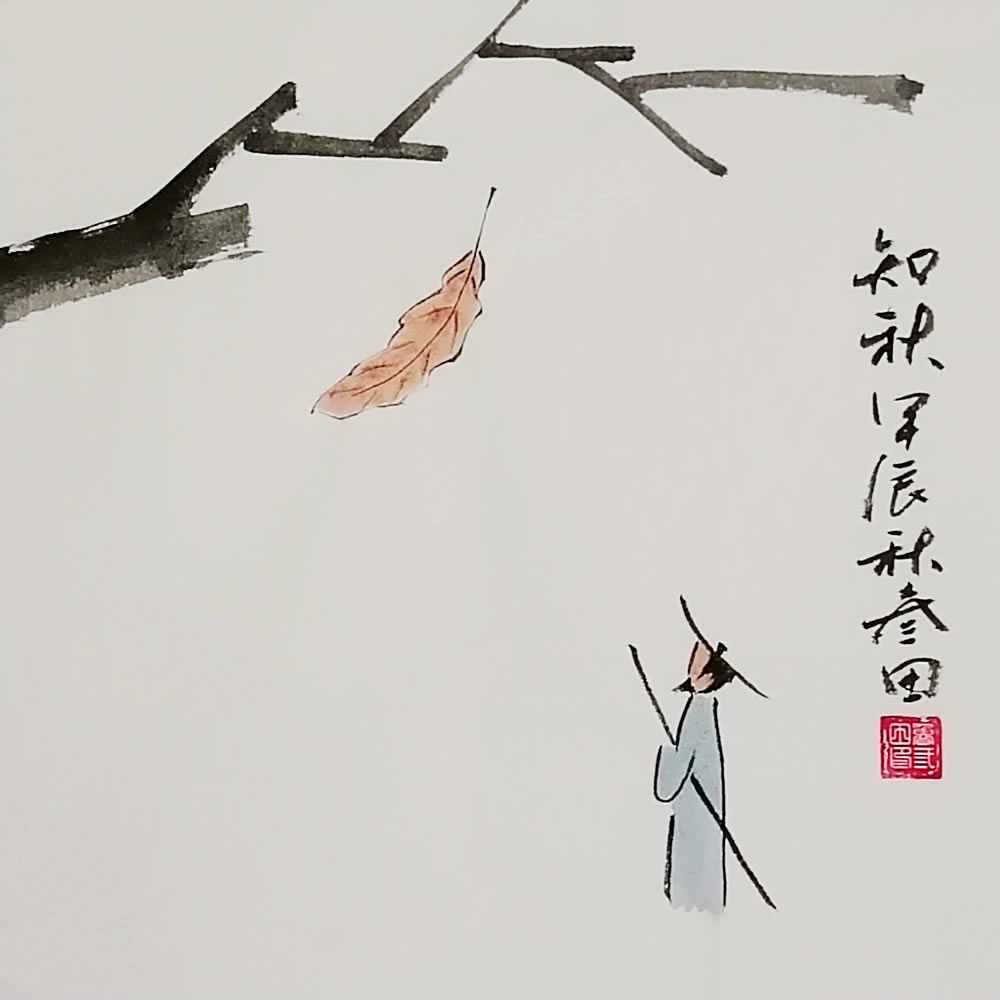 知秋甲辰秋田